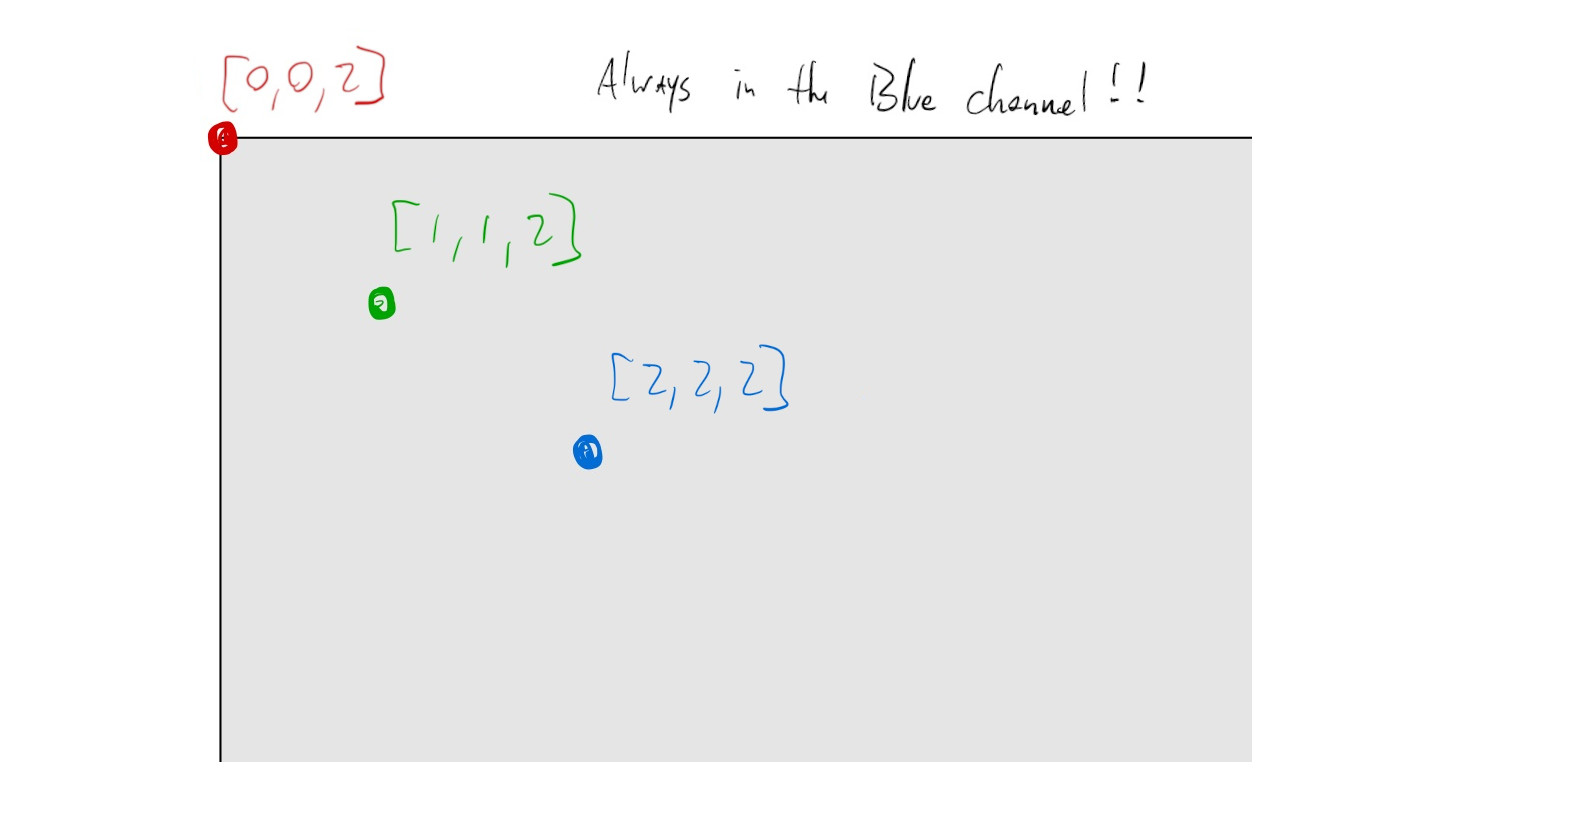 [0,0,2]
Always in the Blue channel!!
[1,1,2]
[2,2,2]